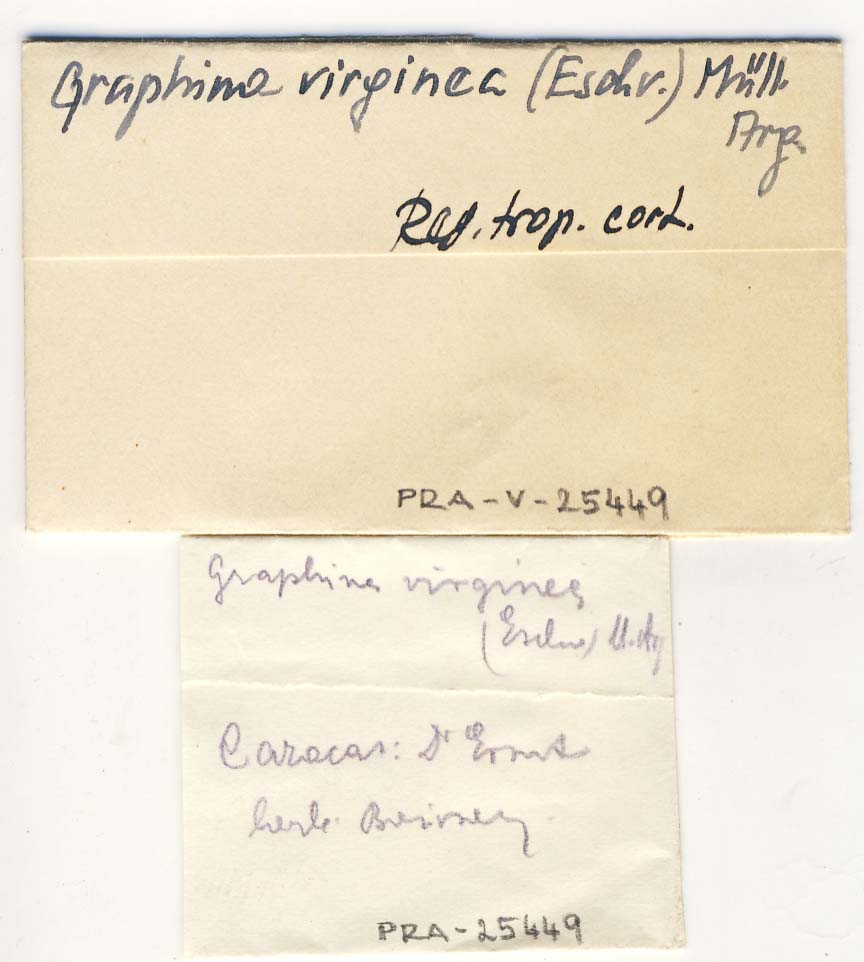 Graphina virginea (Eschw.) Müll.
Arg.
Reg. trop. cort.
PRA-V-25449
Graphina virginea
(Eschw) M. Arg
Caracas: Dr Ernst
herb.
PRA-25449